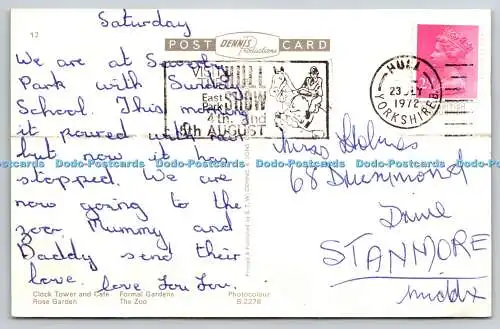 Saturday
12
POST DENNIS Productions CARD
We are at Sewerby
Park with Sunday
School. This morning
it poured with rain
but now it has
stopped. We are
now going to the
zoo. Mummy and
Daddy send their
love. love Lou Lou.
VISIT HULL
East Park SHOW
4th. and
5th AUGUST
HULL
23 JLY
1972
YORKSHIRE
Miss Holmes
68 Drummond
Drive
STANMORE
Middx
Dodo-Postcards Dodo-Postcards Dodo-Postcards Dodo-Postcards Dodo-Postcards Dodo-Postcards
Clock Tower and Café Formal Gardens
Rose Garden The Zoo
Photocolour
S 2278